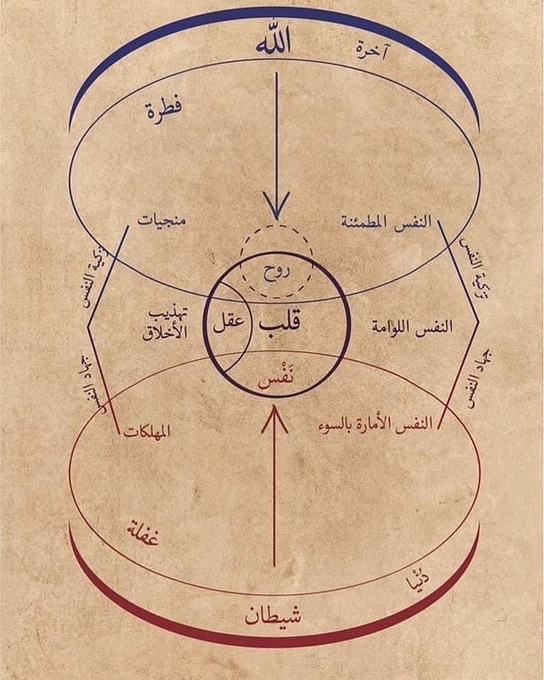 الله
آخرة
فطرة
النفس المطمئنة
منجيات
تزكية النفس
تزكية النفس
روح
قلب
عقل
النفس اللوّامة
تهذيب
الأخلاق
نَفْس
جهاد النفس
جهاد النفس
النفس الأمارة بالسوء
المهلكات
غفلة
دُنْيا
شيطان